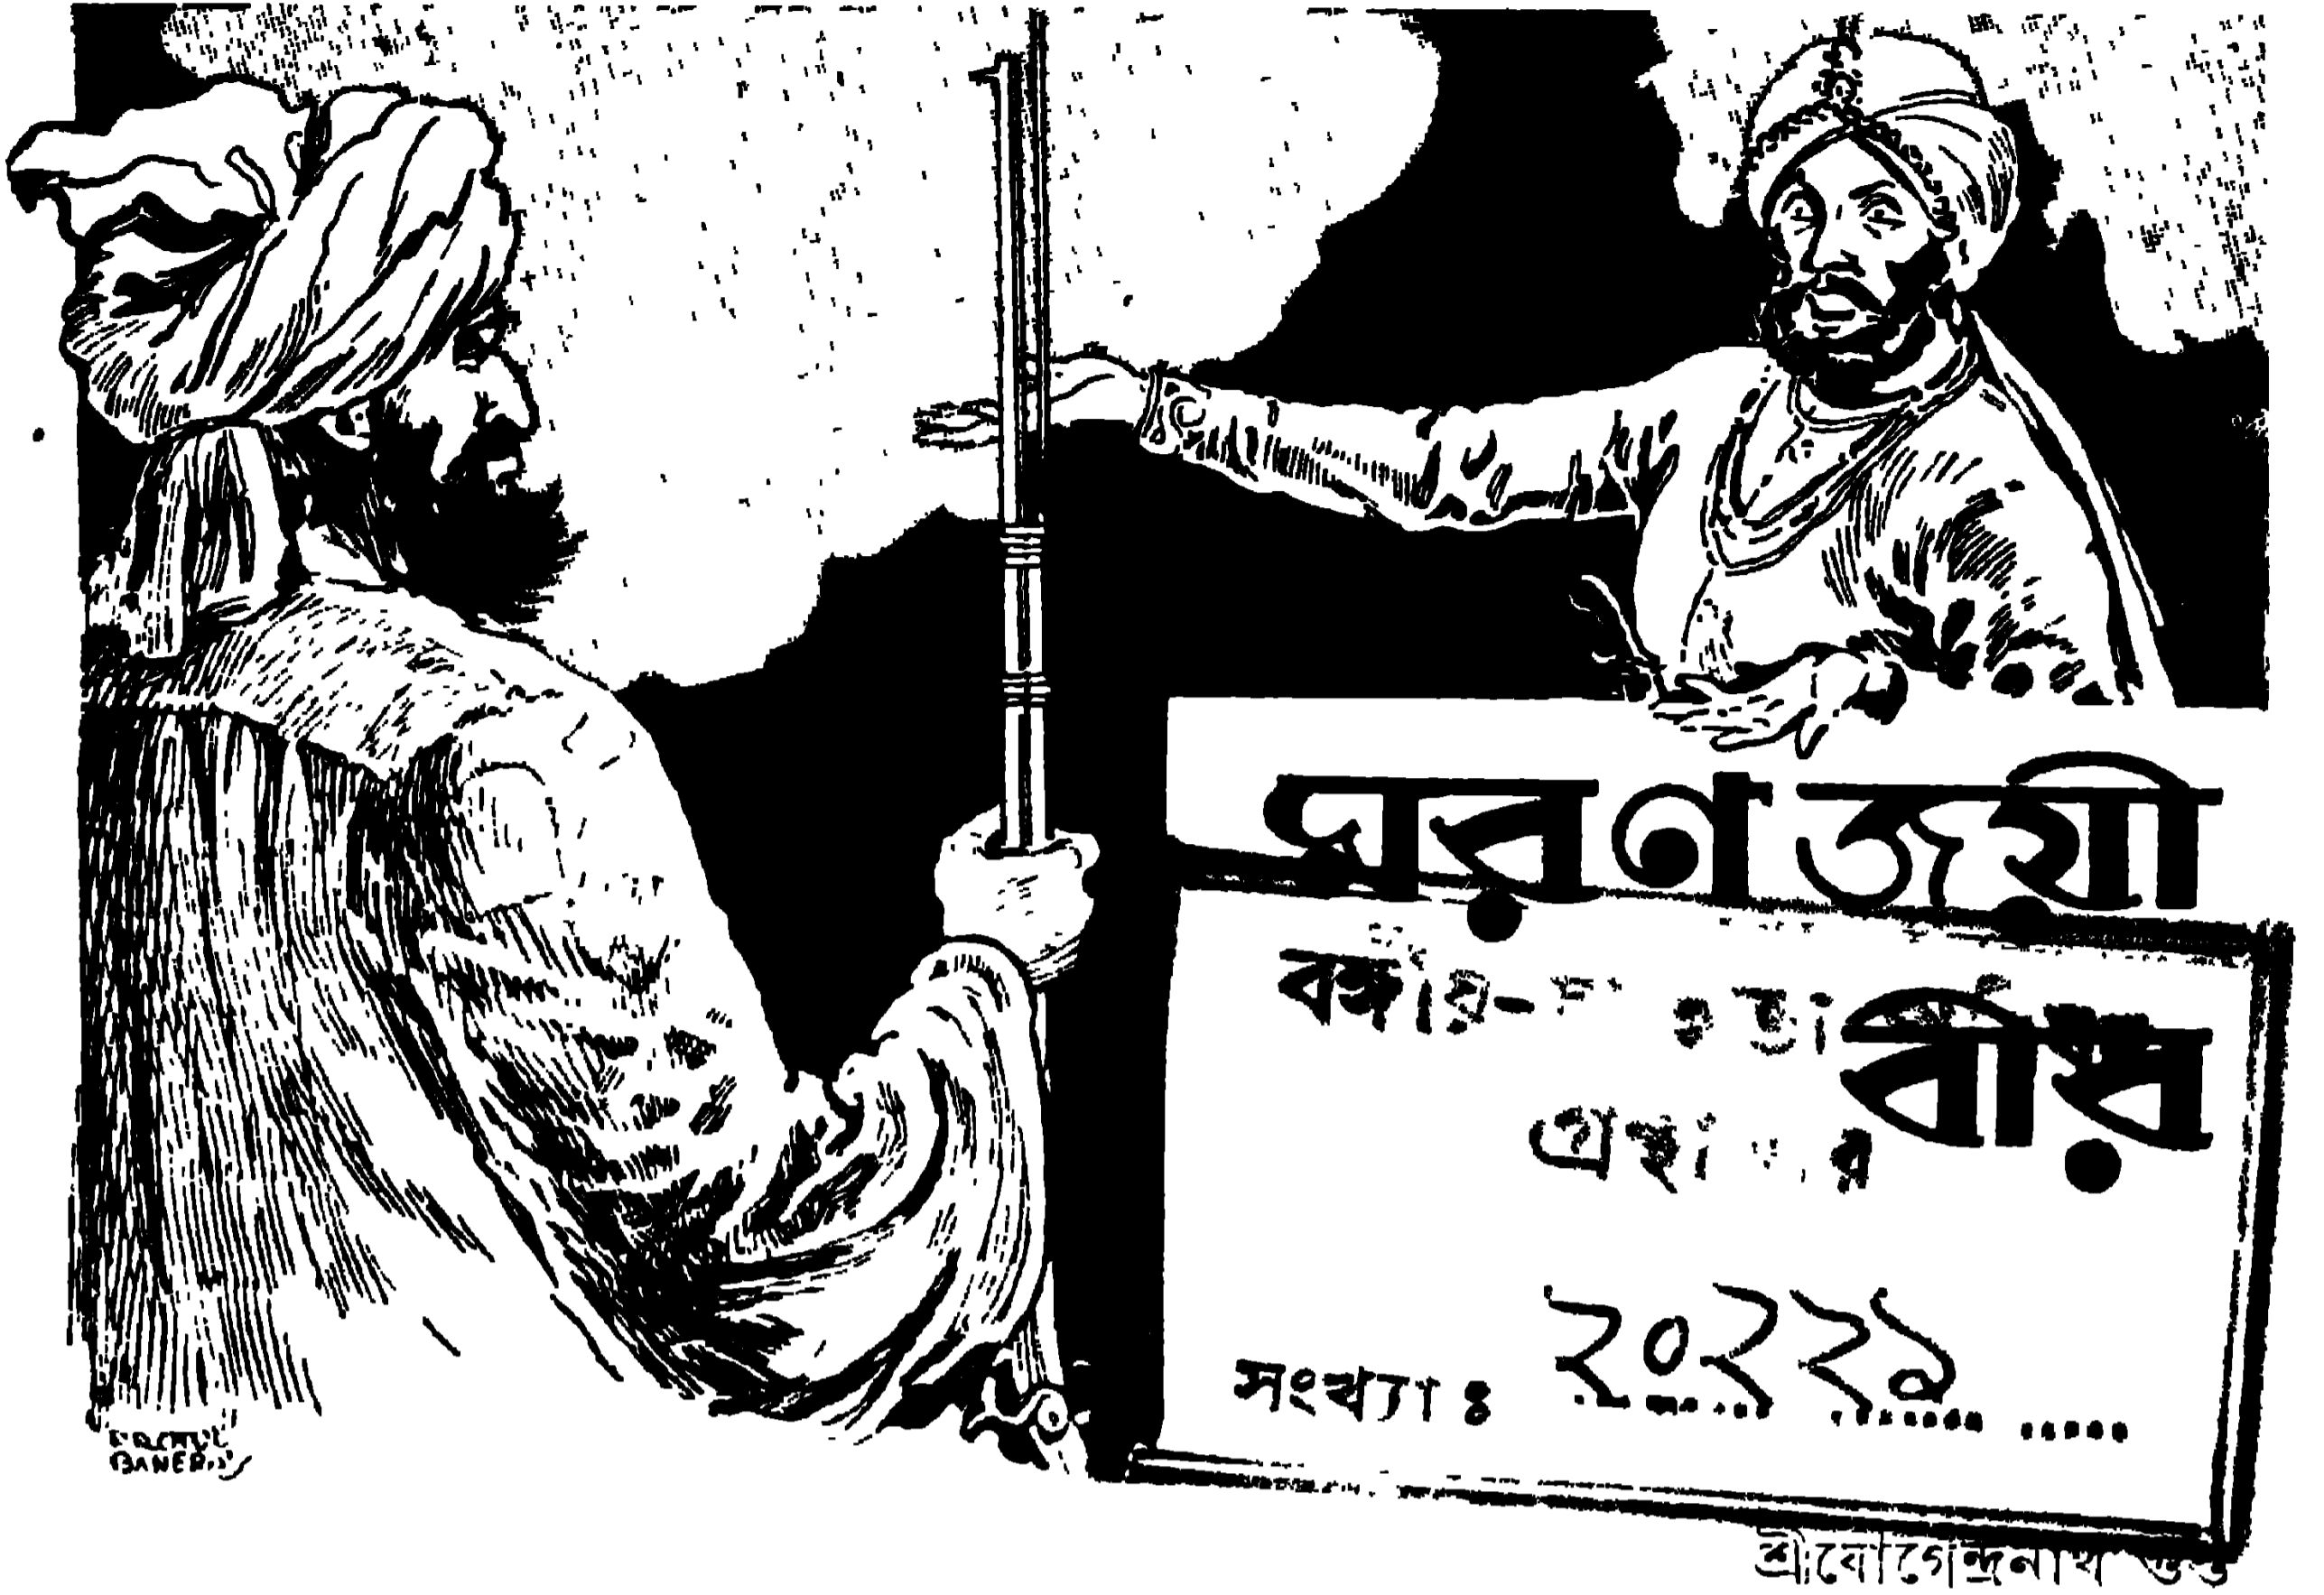 মরণজয়ী
বীর
গ্রন্থাগার
সংখ্যা ঃ ২০২২৯
শ্রীযোগেন্দ্রনাথ গুপ্ত
BANERJI